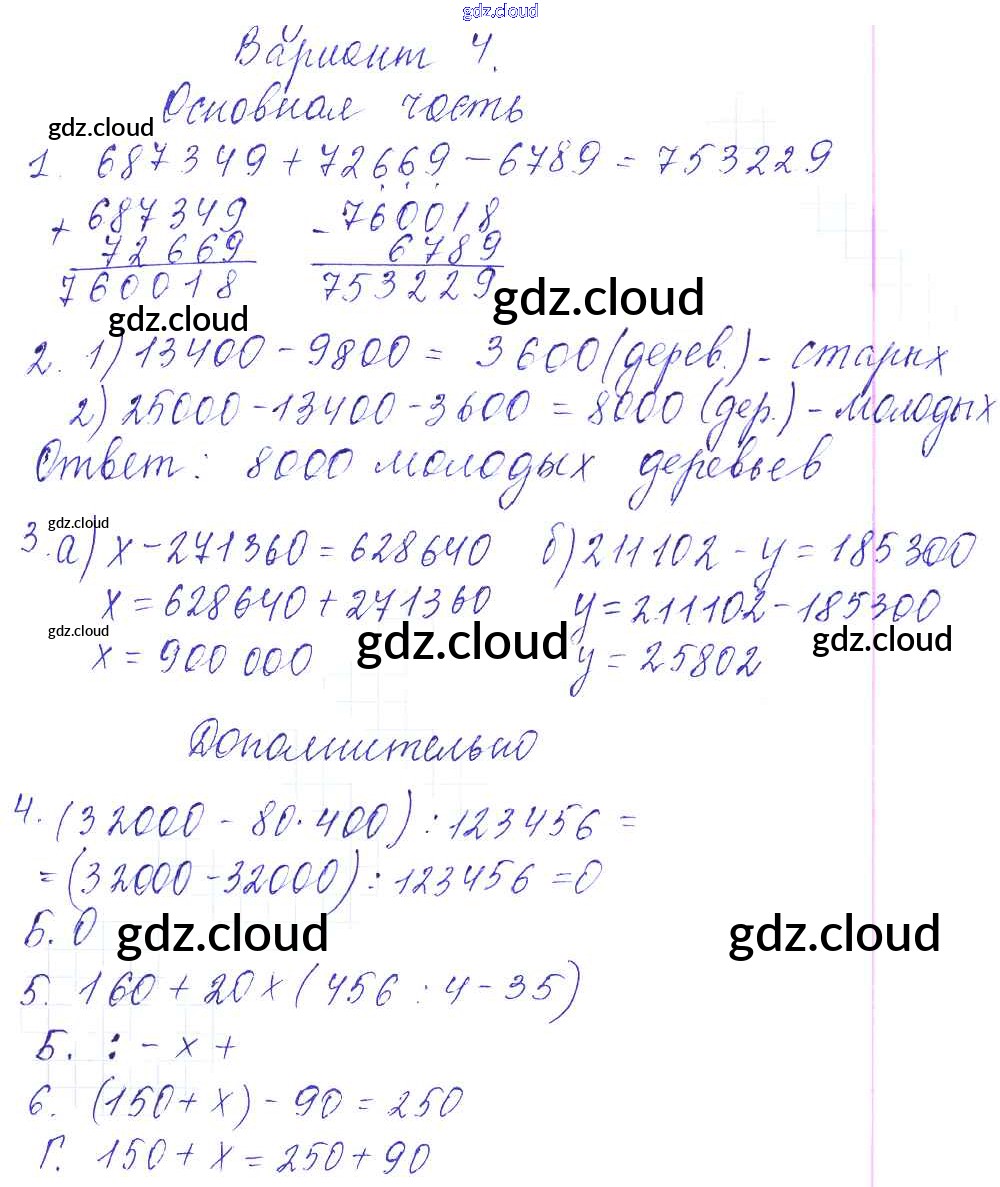 gdz.cloud
Вариант 4.
Основная часть
gdz.cloud
1. 687349 + 72669 - 6789 = 753229
+ 687349 - 760018
72669 6789
760018 753229
gdz.cloud
gdz.cloud
2. 1) 13400 - 9800 = 3600 (дерев.) - старых
2) 25000 - 13400 - 3600 = 8000 (дер.) - молодых
Ответ: 8000 молодых деревьев
gdz.cloud
3. а) x - 271360 = 628640 б) 211102 - y = 185300
x = 628640 + 271360 y = 211102 - 185300
gdz.cloud gdz.cloud gdz.cloud
x = 900 000 y = 25802
Дополнительно
4. (32000 - 80 · 400) : 123456 =
= (32000 - 32000) : 123456 = 0
Б. 0
gdz.cloud gdz.cloud
5. 160 + 20 x (456 : 4 - 35)
Б. : - x +
6. (150 + x) - 90 = 250
Г. 150 + x = 250 + 90